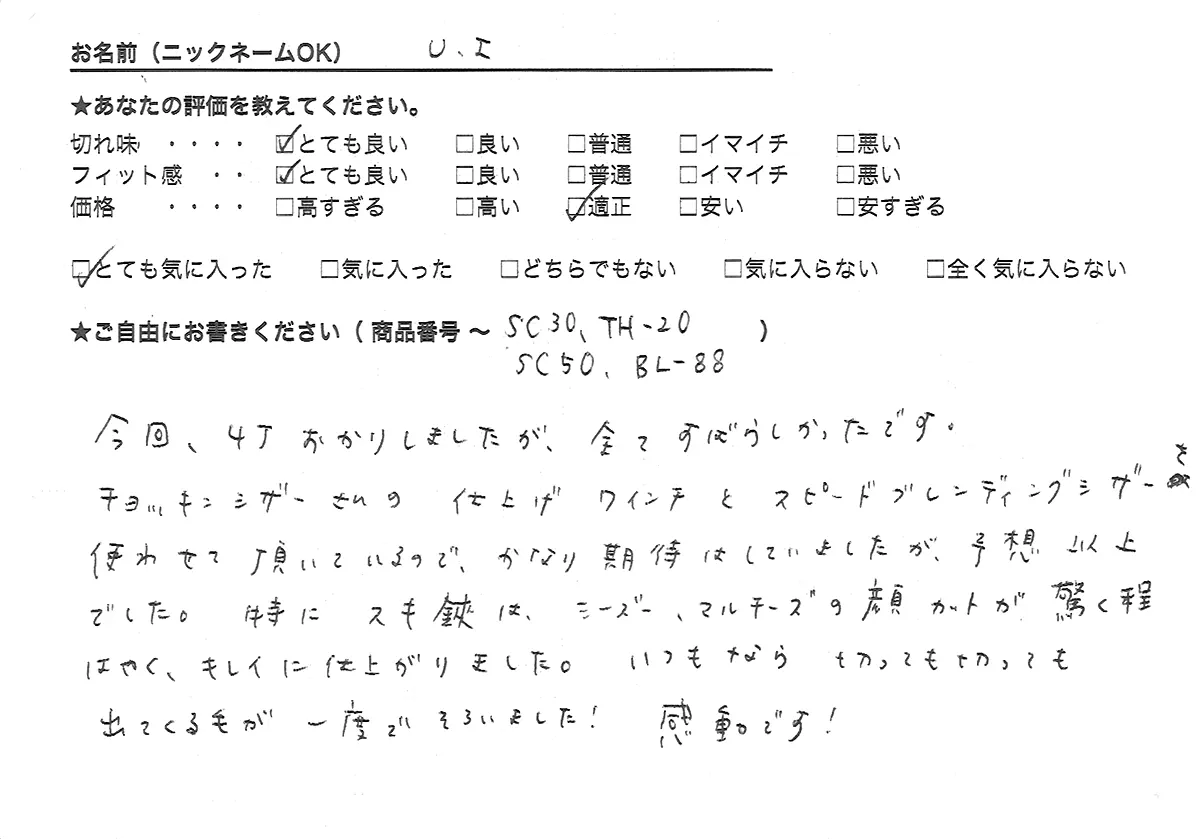 お名前（ニックネームOK） U、I
★あなたの評価を教えてください。
切れ味 ・・・・ ☑とても良い □良い □普通 □イマイチ □悪い
フィット感 ・・ ☑とても良い □良い □普通 □イマイチ □悪い
価格 ・・・・ □高すぎる □高い ☑適正 □安い □安すぎる
☑とても気に入った □気に入った □どちらでもない □気に入らない □全く気に入らない
★ご自由にお書きください（商品番号～ SC30、TH-20 ）
SC50、BL-88
今回、4丁おかりしましたが、全てすばらしかったです。
チョッキンシザーさんの仕上げ ワインチとスピードブレンディングシザーを
使わせて頂いているので、かなり期待はしていましたが、予想以上
でした。特にスキ鋏は、シーズー、マルチーズの顔カットが驚く程
はやく、キレイに仕上がりました。いつもなら切っても切っても
出てくる毛が一度でそろいました！感動です！